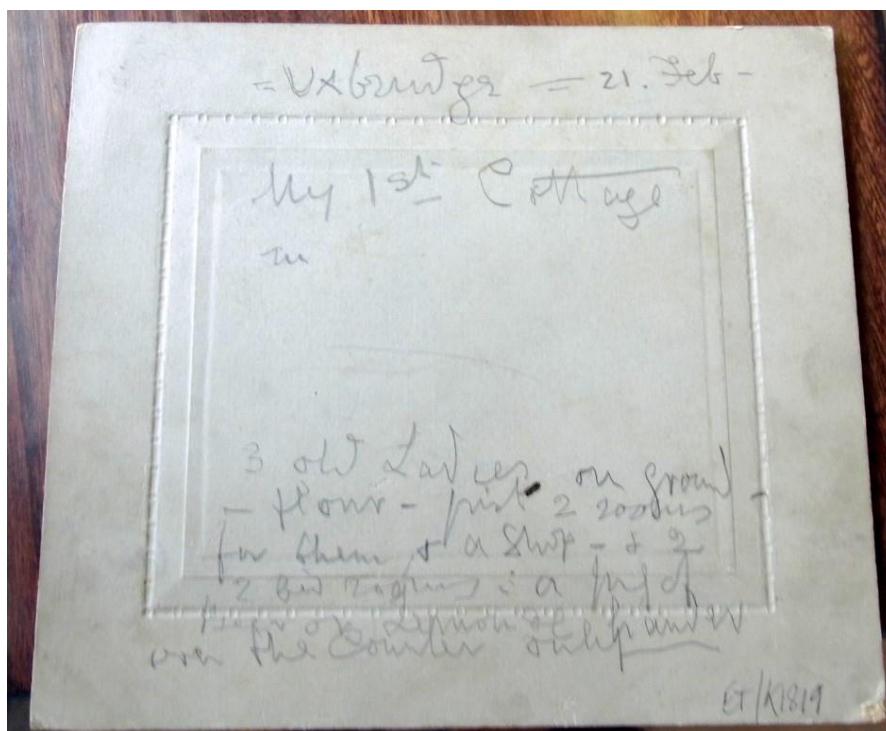 = Uxbridge = 21. Feb -
My 1st Cottage
in
3 old Ladies on ground
- floor - just 2 rooms
for them & a Shop - & 2
2 bed rooms : a jug of
Beer or Lemonade handed
over the Counter only
ET/K1819